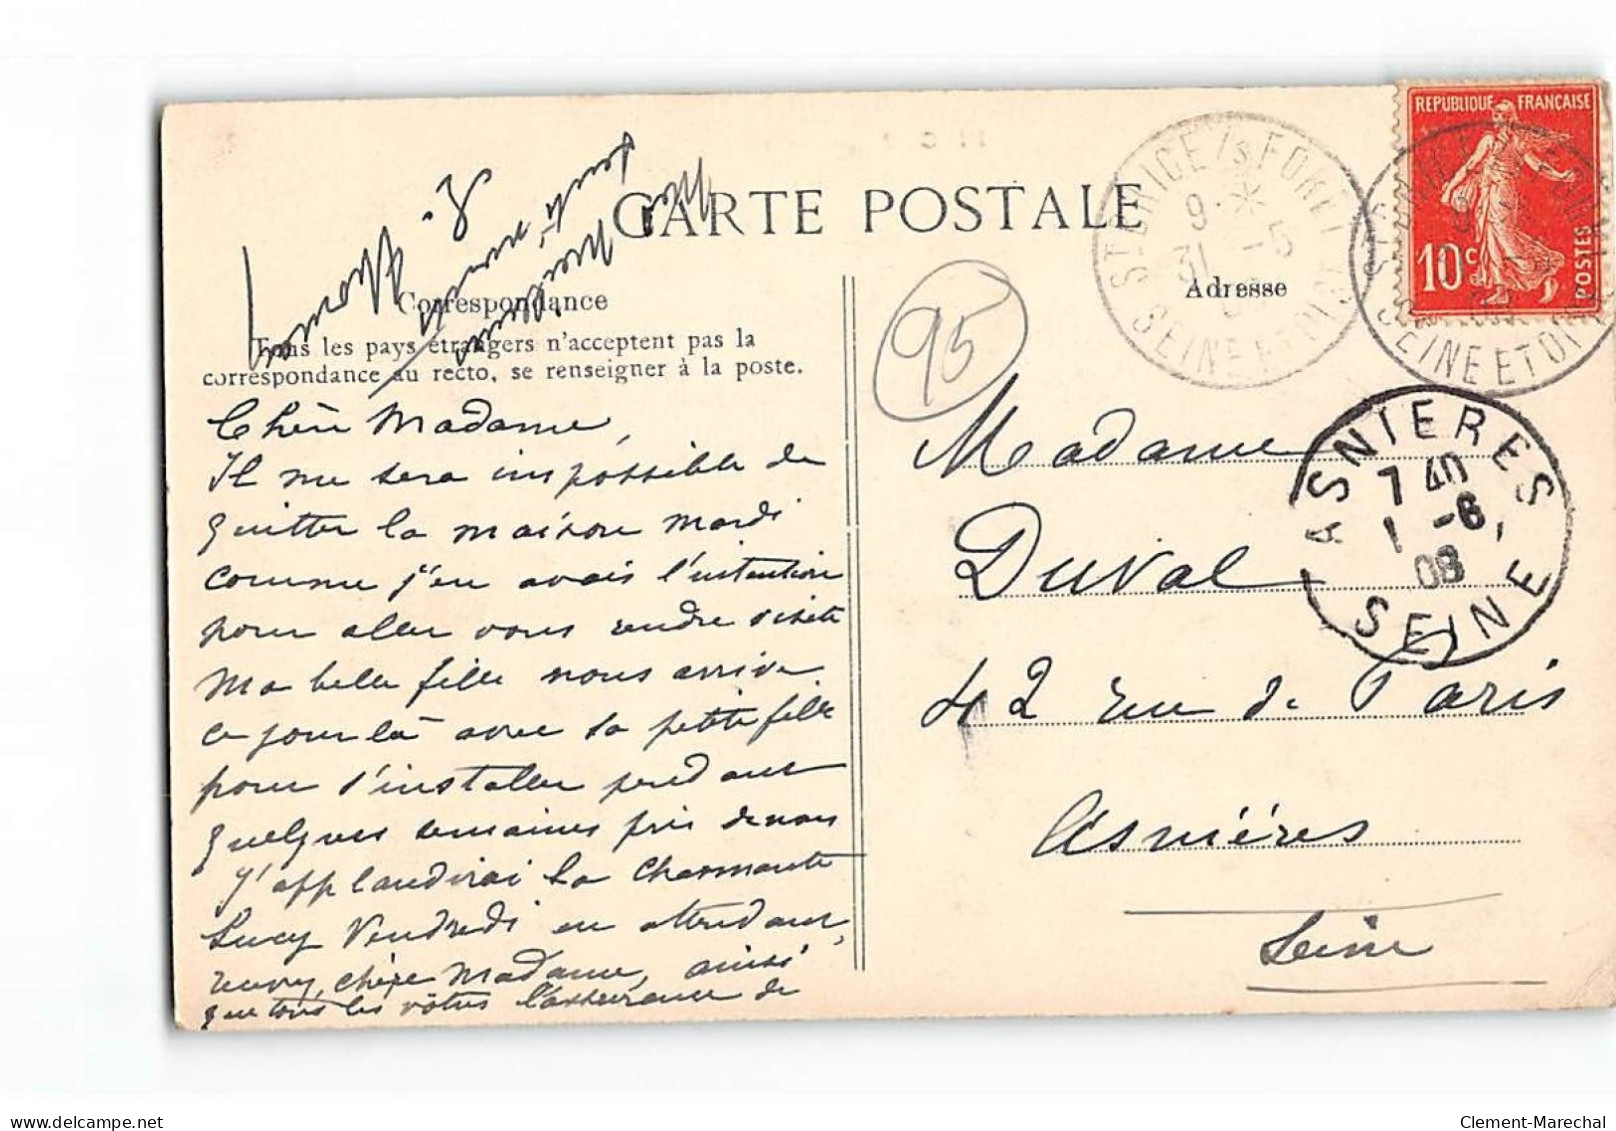 CARTE POSTALE
Correspondance
Tous les pays étrangers n'acceptent pas la
correspondance au recto, se renseigner à la poste.
Chère Madame,
Il me sera impossible de
quitter la maison mardi
comme j'en avais l'intention
pour aller vous rendre visite
Ma belle fille nous arrive
ce jour là avec sa petite fille
pour s'installer pendant
quelques semaines près de nous
J'applaudirai la charmante
Lucy Vendredi en attendant
recevez, chère Madame, ainsi
que tous les vôtres l'assurance de
95
Adresse
Madame
Duval
42 rue de Paris
Asnières
Seine
REPUBLIQUE FRANÇAISE
10c
POSTES
ST BRICE /s FORET
9 *
31 -5
SEINE ET OISE
ASNIERES
7 40
1 -6
08
SEINE
Clement-Marechal